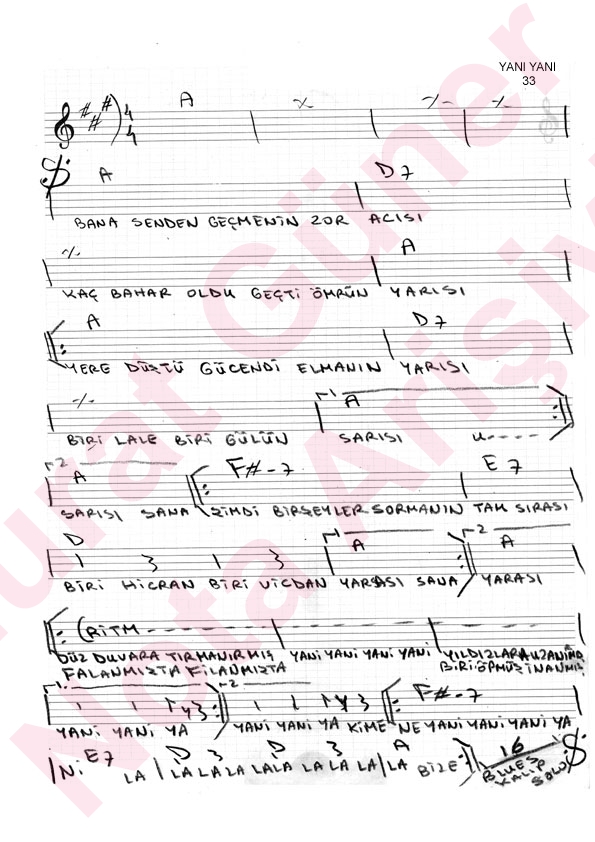 YANI YANI
33
A
A D7
BANA SENDEN GEÇMENİN ZOR ACISI
A
KAÇ BAHAR OLDU GEÇTİ ÖMRÜN YARISI
A D7
YERE DÜŞTÜ GÜCENDİ ELMANIN YARISI
1 A
BİRİ LALE BİRİ GÜLÜN SARISI u----
2 A F#-7 E7
SARISI SANA ŞİMDİ BİRŞEYLER SORMANIN TAM SIRASI
D 1 A 2 A
BİRİ HİCRAN BİRİ VİCDAN YARASI SANA YARASI
(RİTM
DÜZ DUVARA TIRMANIRMIŞ YANİ YANİ YANİ YANİ YILDIZLARA UZANIRMIŞ
FALANMIŞTA FİLANMIŞTA BİRİ ÖPMÜŞ İNANMIŞ
1 2 F#-7
YANİ YANİ YA YANİ YANİ YA KİME NE YANİ YANİ YANİ YA
E7 D D A 16
Nİ LA LA LA LA LALA LA LA LA LA BİZE BLUES KALIP SOLO
Murat Güner
Nota Arşivi